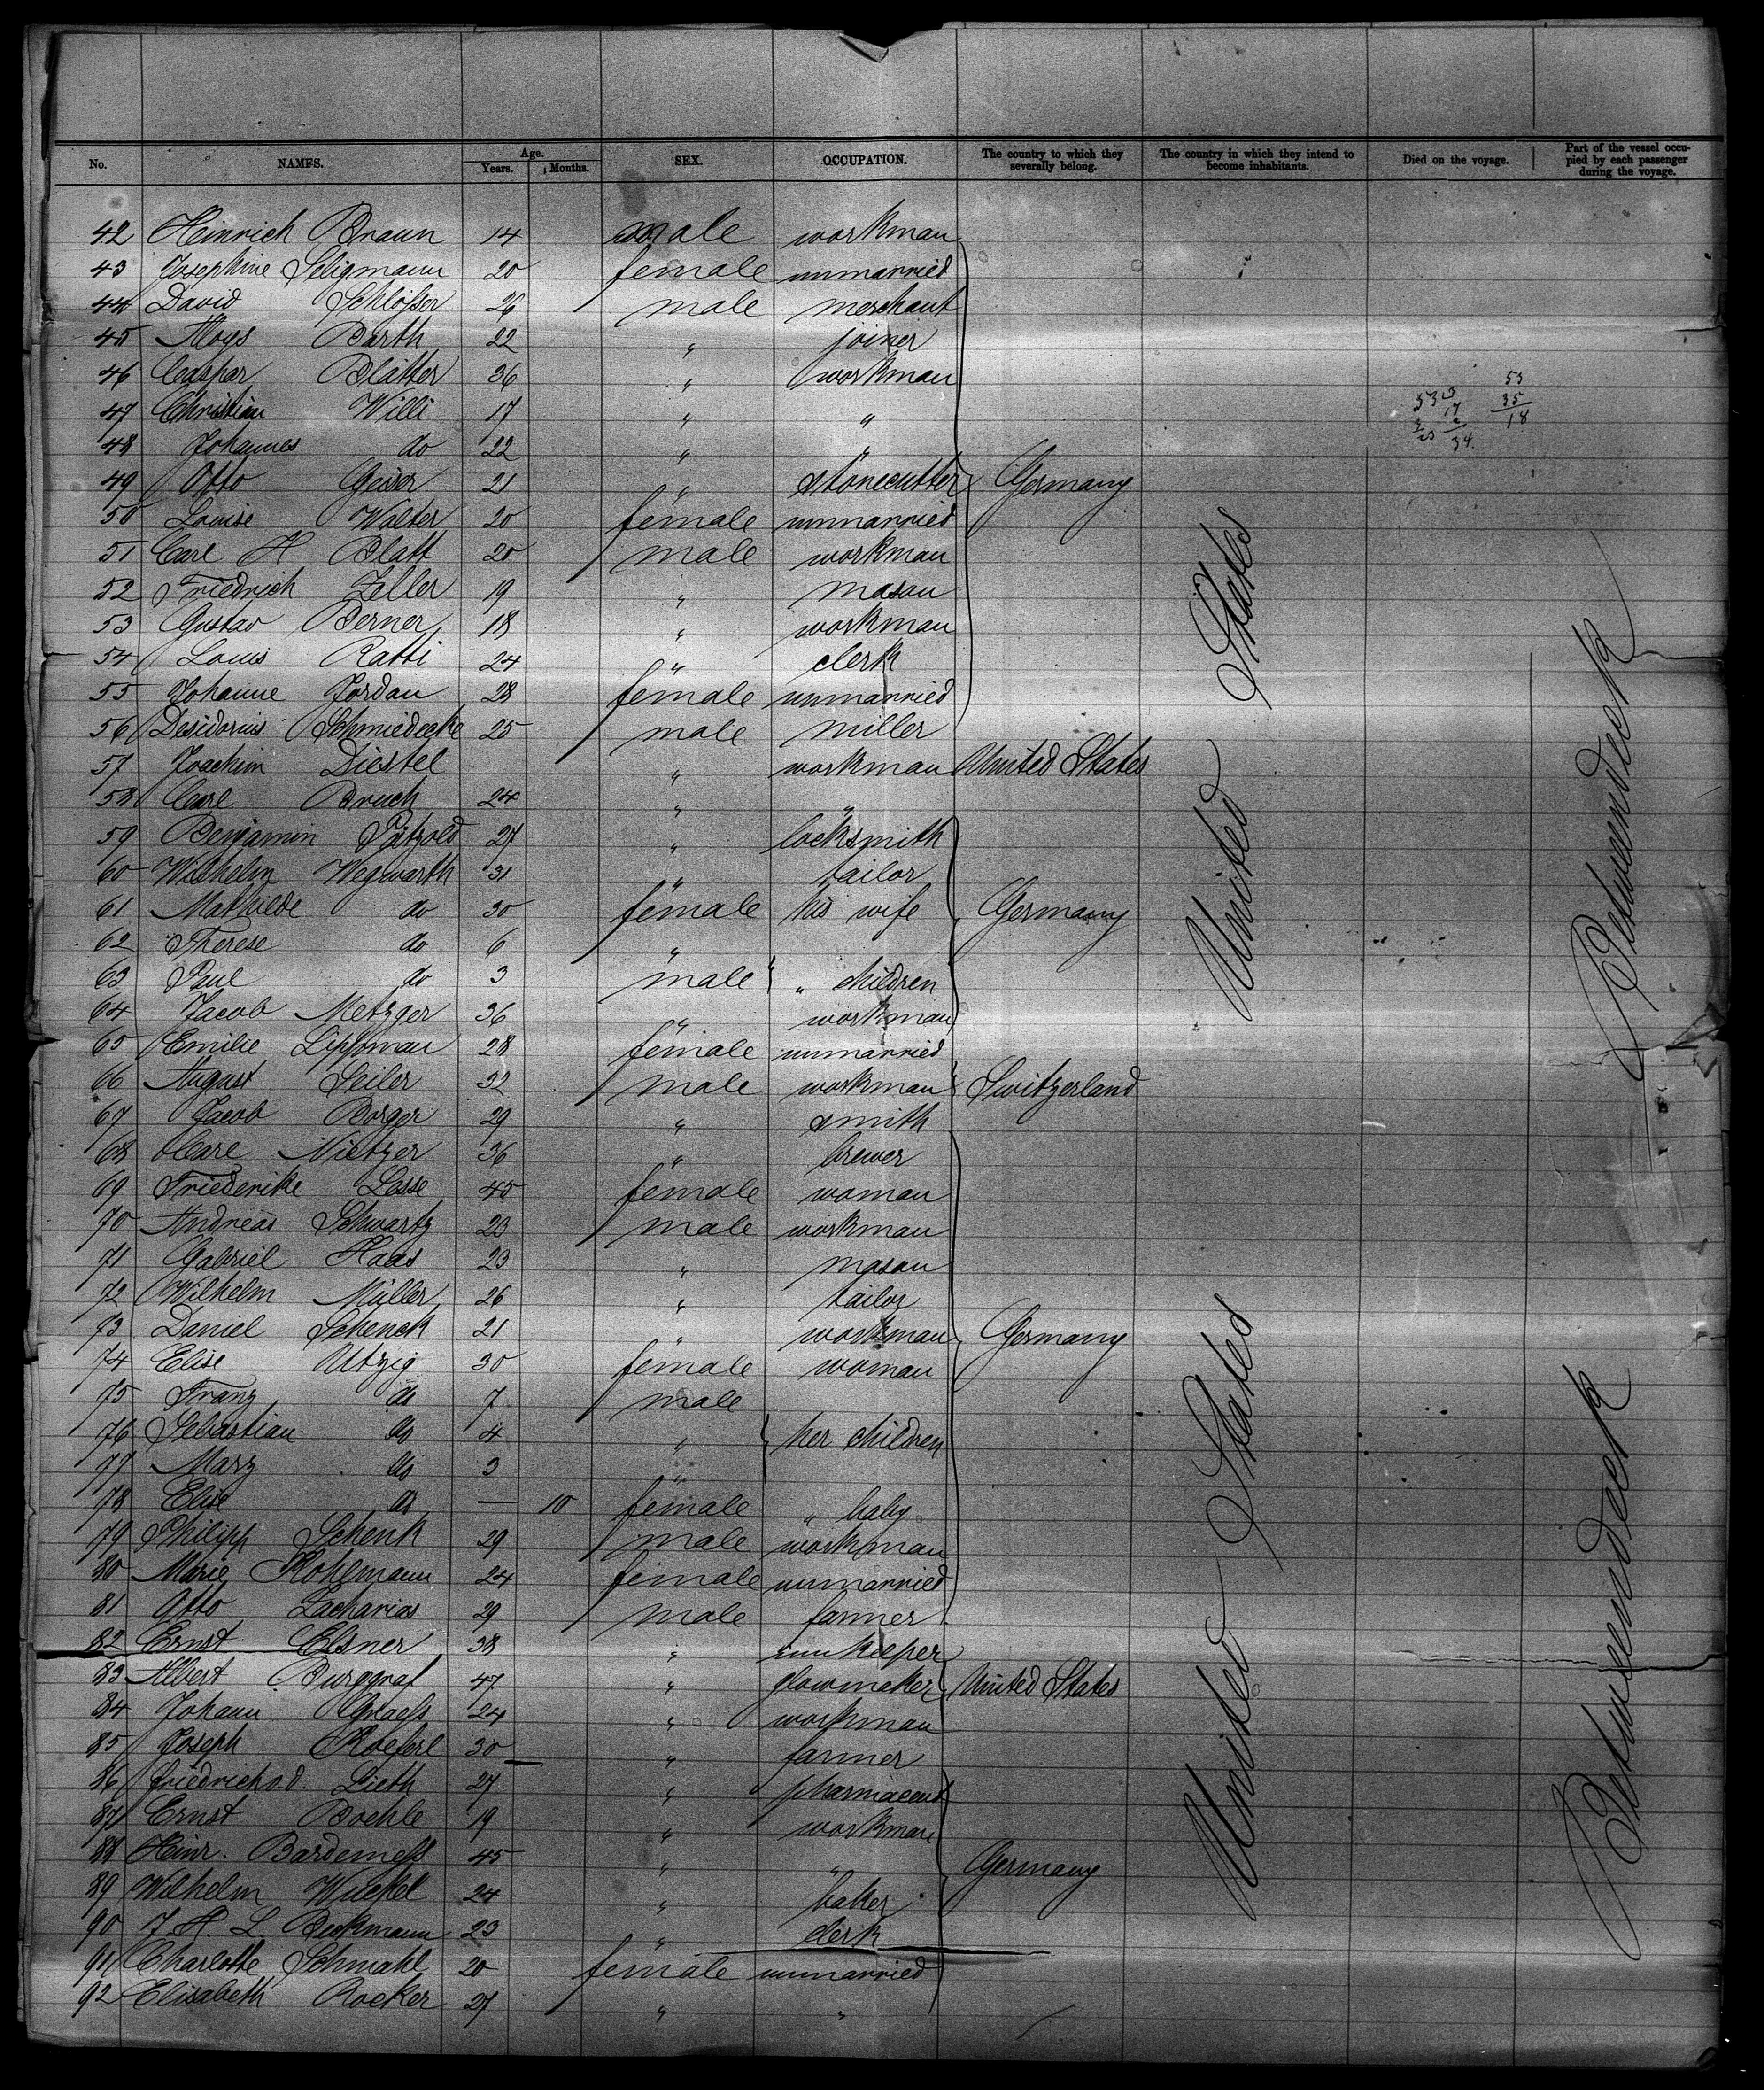 No. NAMES. Age. Years. Months. SEX. OCCUPATION. The country to which they severally belong. The country in which they intend to become inhabitants. Died on the voyage. Part of the vessel occupied by each passenger during the voyage.
42 Heinrich Braun 14 male workman
43 Josephine Seligmann 20 female unmarried
44 David Schlößer 26 male merchant
45 Aloys Barth 22 " joiner
46 Caspar Blätter 36 " workman
47 Christian Willi 17 " "
48 Johannes do 22 " "
49 Otto Geiser 21 " stonecutter Germany
50 Louise Walter 20 female unmarried
51 Carl H Blatt 20 male workman
52 Friedrich Zeller 19 " mason
53 Gustav Berner 18 " workman
54 Louis Ratti 24 " clerk
55 Johanne Jordan 28 female unmarried
56 Desidorius Schmiedecke 25 male miller
57 Joachim Diestel " workman United States
58 Carl Bruch 24 " "
59 Benjamin Pätzold 27 " locksmith
60 Wilhelm Wegwarth 31 " tailor
61 Mathilde do 30 female his wife Germany
62 Therese do 6 "
63 Paul do 3 male " children
64 Jacob Metzger 36 " workman
65 Emilie Lippman 28 female unmarried
66 August Seiler 32 male workman Switzerland
67 Jacob Borger 29 " smith
68 Carl Nietzer 36 " brewer
69 Friederike Losse 45 female woman
70 Andreas Schwartz 23 male workman
71 Gabriel Haas 23 " mason
72 Wilhelm Müller 26 " tailor
73 Daniel Schenck 21 " workman Germany
74 Elise Utzig 30 female woman
75 Franz do 7 male
76 Sebastian do 4 " her children
77 Marz do 3 "
78 Elise do — 10 female " baby
79 Philipp Schenk 29 male workman
80 Marie Kohlmann 24 female unmarried
81 Otto Zacharias 29 male farmer
82 Ernst Elsner 38 " innkeeper
83 Albert Burggraf 47 " glowmaker United States
84 Johann Graeß 24 " workman
85 Joseph Koeferl 30 " farmer
86 Friedrich v.d. Lieth 27 " pharmaceut
87 Ernst Boehle 19 " workman
88 Heinr. Bardemeß 45 " " Germany
89 Wilhelm Wuckel 24 " baker
90 F. H. L Beckmann 23 " clerk
91 Charlotte Schmahl 20 female unmarried
92 Elisabeth Rocker 27 " "
United States
United States
Betweendeck
Betweendeck
53
35
18
17
34